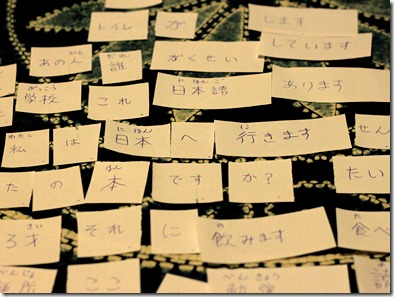 トイレ が します
しています
あの人 誰 がくせい
学校 これ 日本語 あります
私 は 日本 へ 行きます せん
た の 本 です か? たい
3才 それ に 飲みます 食べ
ここ